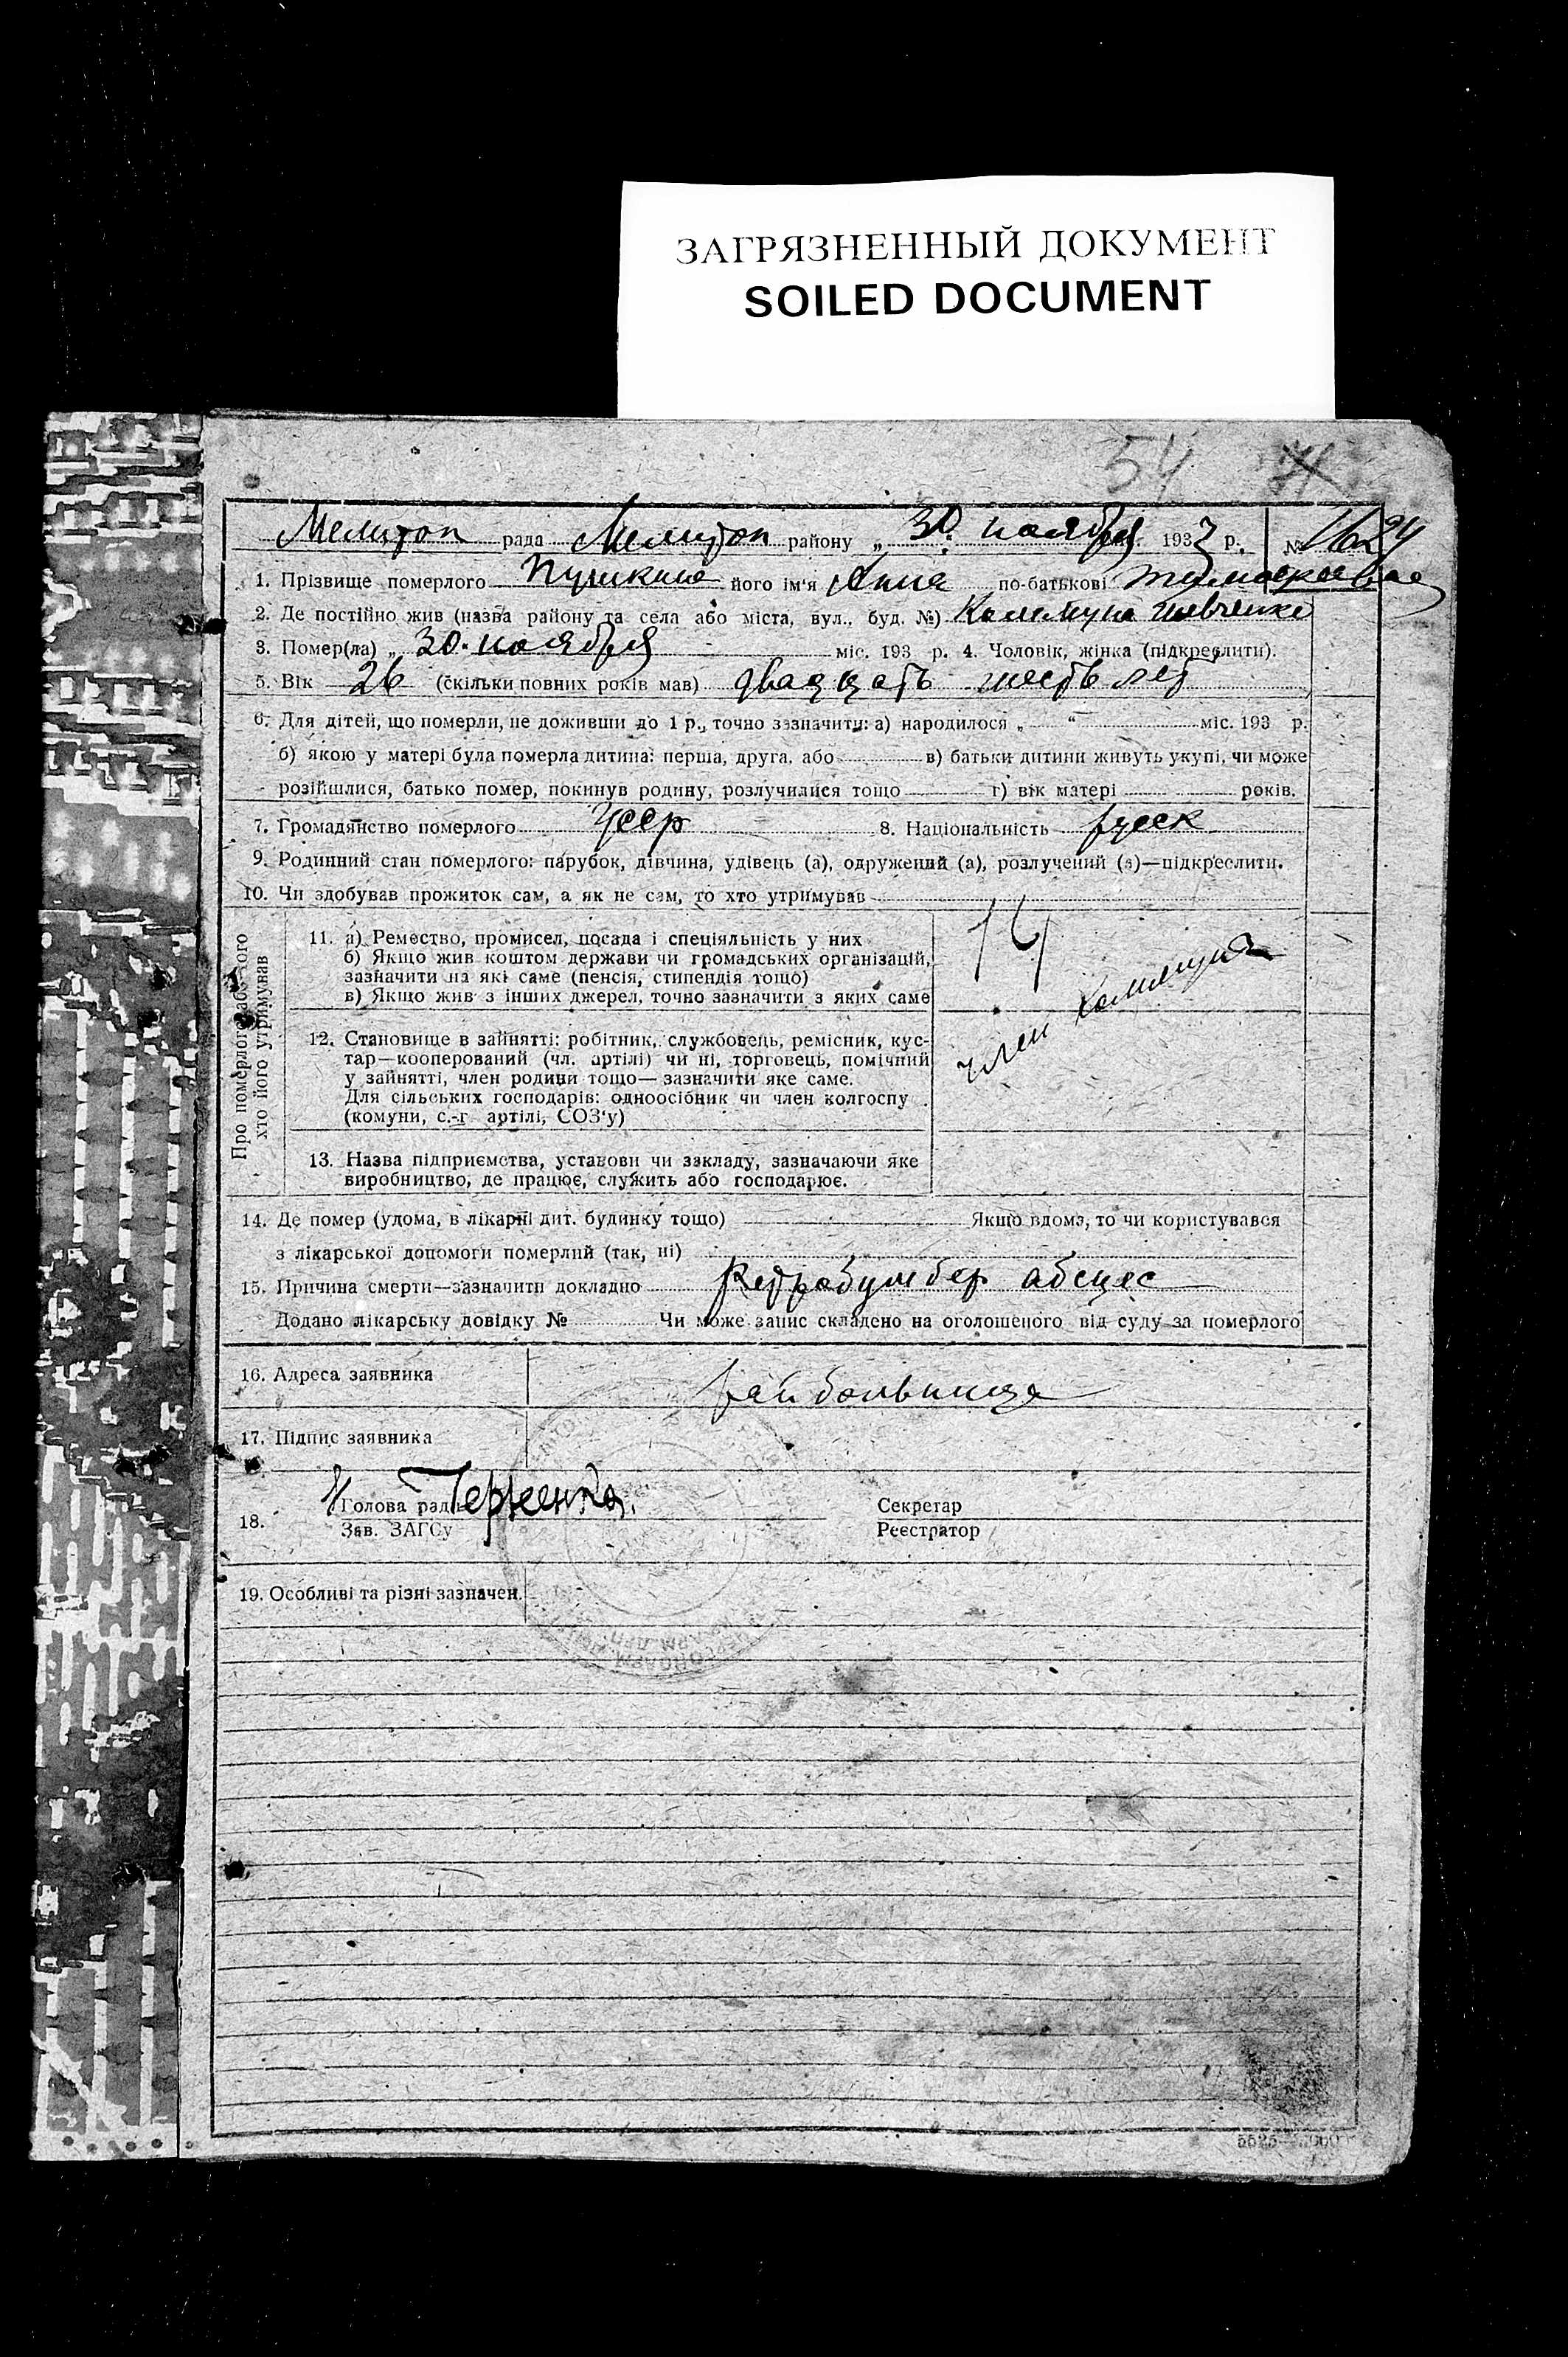 ЗАГРЯЗНЕННЫЙ ДОКУМЕНТ
SOILED DOCUMENT
54
Мелитоп рада Мелитоп району „ 30. ноября міс. 1933 р. № 1624
1. Прізвище померлого Пушкина його ім'я Анна по-батькові
2. Де постійно жив (назва району та села або міста, вул., буд. №) Коммуна Шевченко
3. Помер(ла) „ 30. ноября міс. 193 р. 4. Чоловік, жінка (підкреслити).
5. Вік 26 (скільки повних років мав) двадцать шесть лет
6. Для дітей, що померли, не доживши до 1 р., точно зазначити: а) народилося „ “ міс. 193 р.
б) якою у матері була померла дитина: перша, друга, або в) батьки дитини живуть укупі, чи може
розійшлися, батько помер, покинув родину, розлучилися тощо г) вік матері років.
7. Громадянство померлого Усср 8. Національність русск
9. Родинний стан померлого: парубок, дівчина, удівець (а), одружений (а), розлучений (а)—підкреслити.
10. Чи здобував прожиток сам, а як не сам, то хто утримував
Про померлого або того
хто його утримував
11. а) Ремество, промисел, посада і спеціяльність у них
б) Якщо жив коштом держави чи громадських організацій,
зазначити на які саме (пенсія, стипендія тощо)
в) Якщо жив з інших джерел, точно зазначити з яких саме
14
член коммуны
12. Становище в зайнятті: робітник, службовець, ремісник, кус-
тар—кооперований (чл. артілі) чи ні, торговець, помічний
у зайнятті, член родини тощо— зазначити яке саме.
Для сільських господарів: одноосібник чи член колгоспу
(комуни, с.-г артілі, СОЗ'у)
13. Назва підприємства, установи чи закладу, зазначаючи яке
виробництво, де працює, служить або господарює.
14. Де помер (удома, в лікарні дит. будинку тощо) Якщо вдома, то чи користувався
з лікарської допомоги померлий (так, ні)
15. Причина смерти—зазначити докладно абсцес
Додано лікарську довідку № Чи може запис складено на оголошеного від суду за померлого
16. Адреса заявника рай больница
17. Підпис заявника
18. Голова ради Секретар
Зав. ЗАГСу Реєстратор
19. Особливі та різні зазначен.